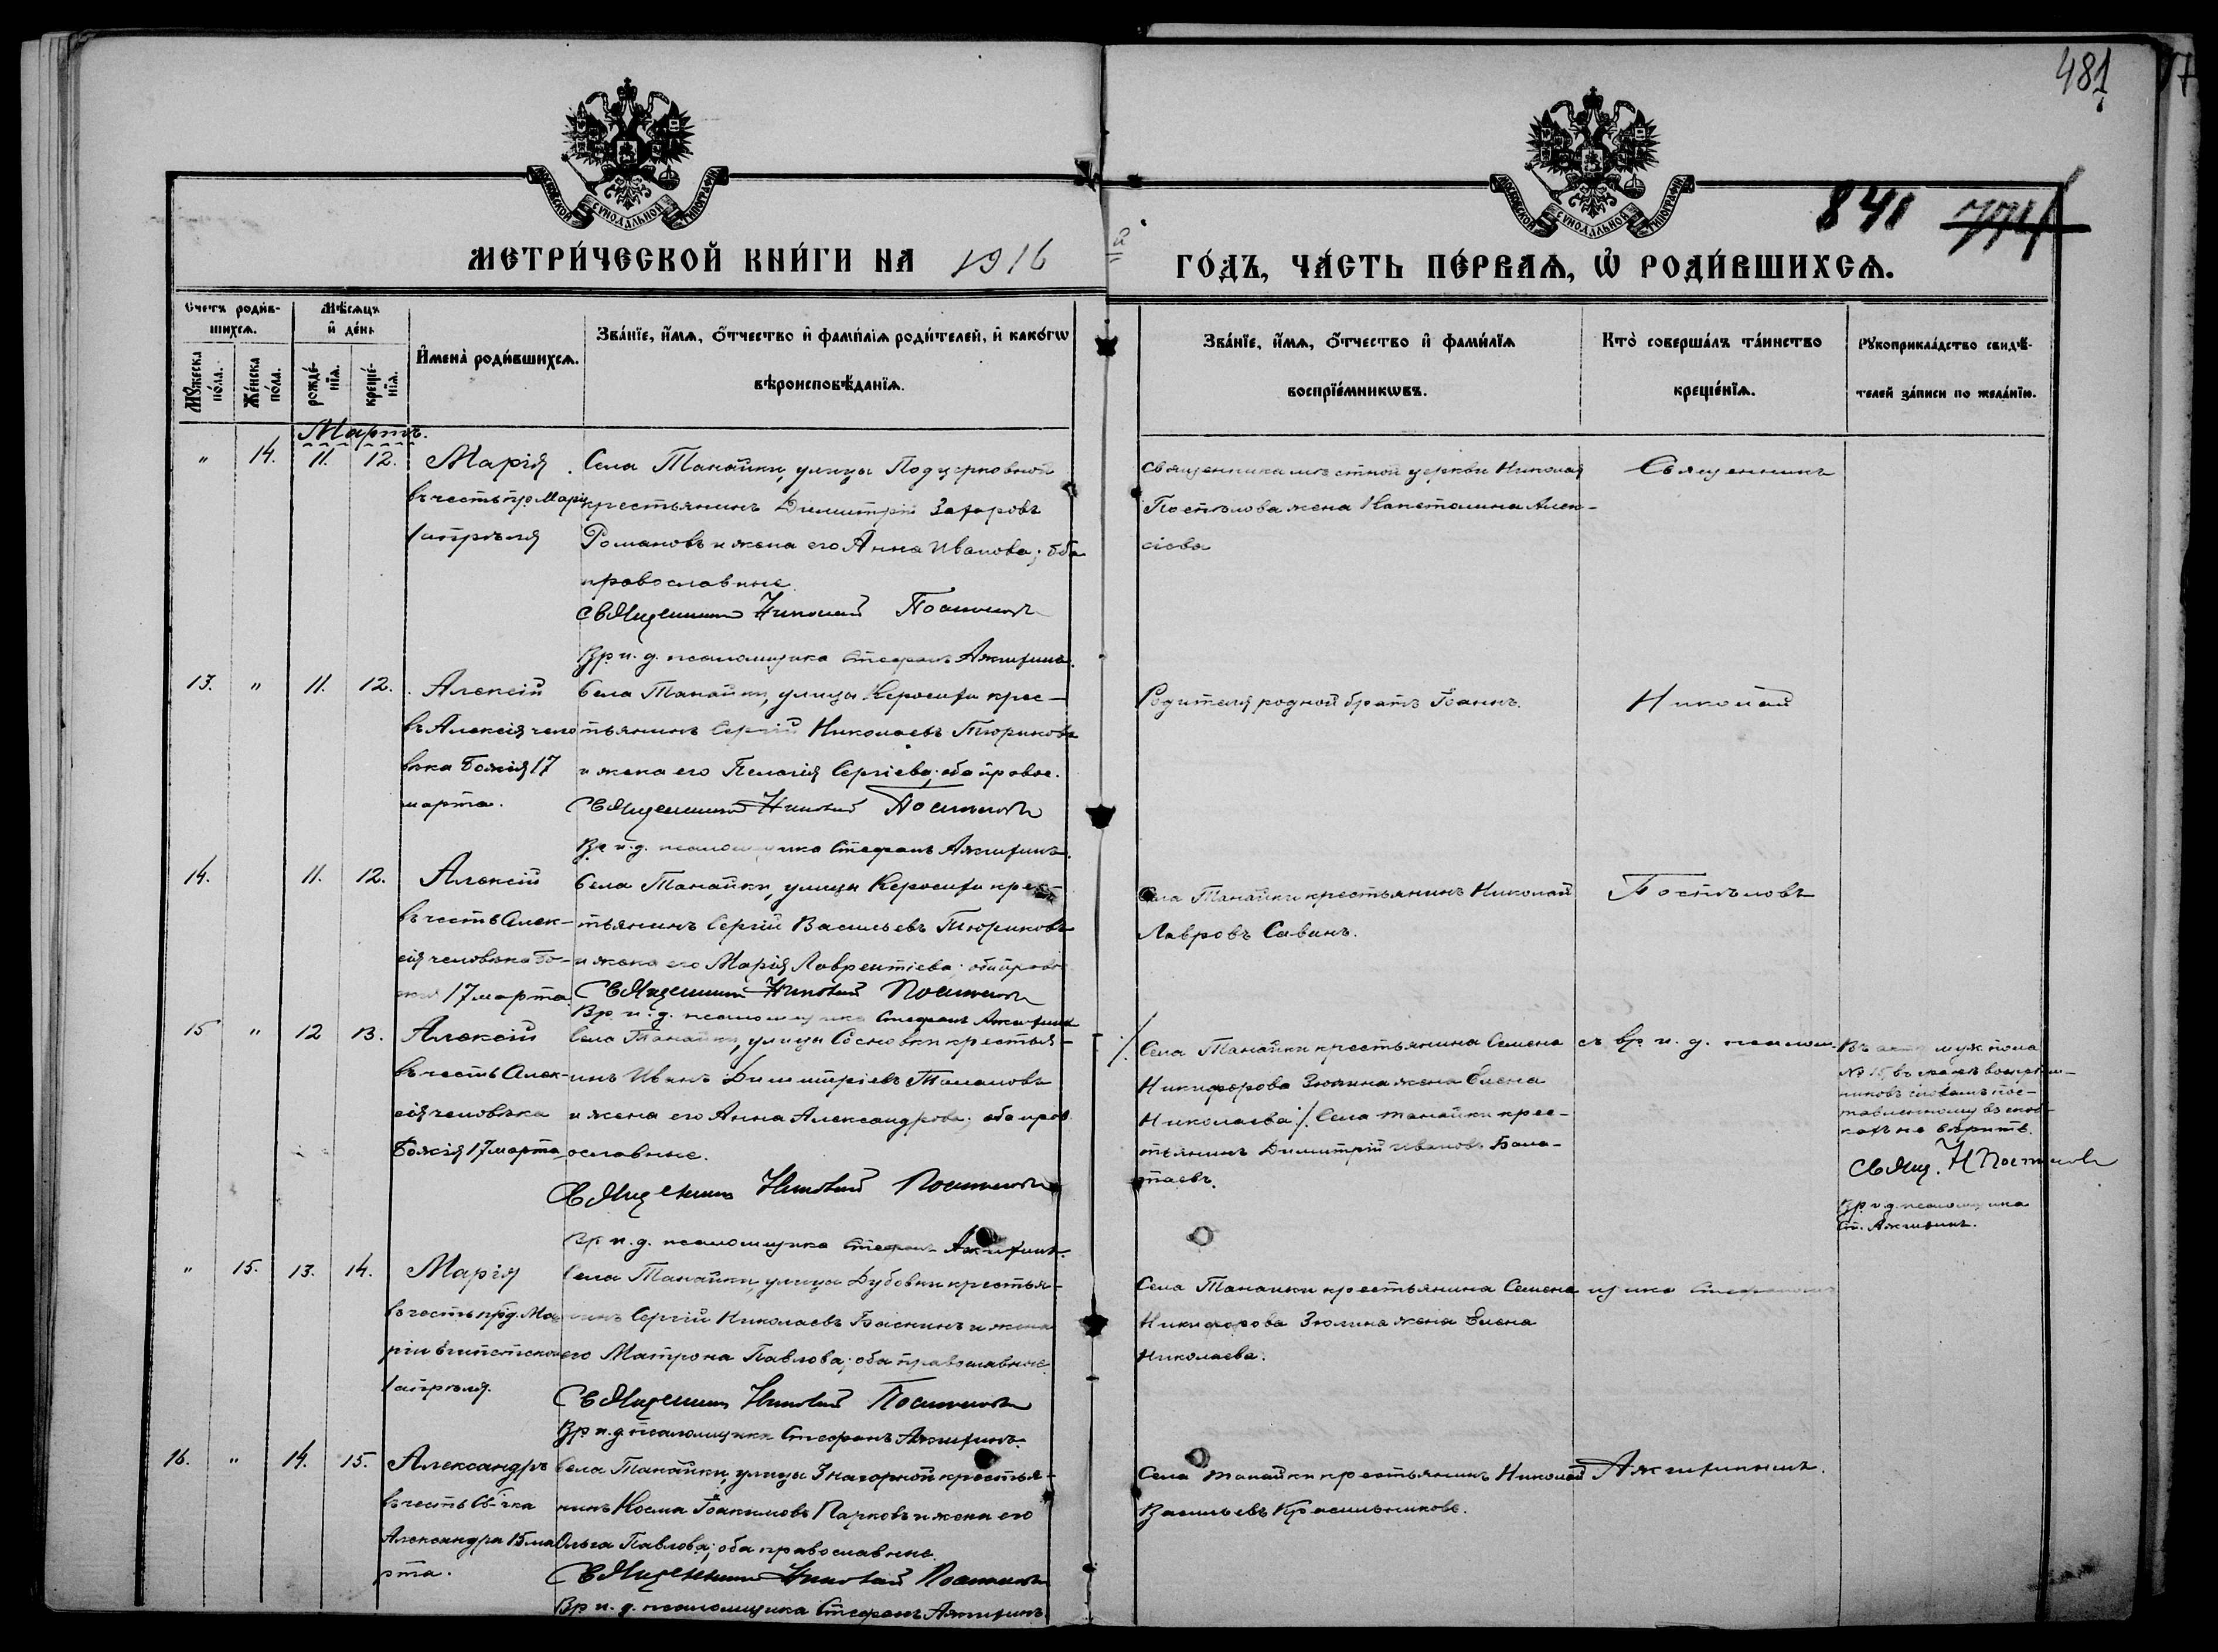 481
841
МОСКОВСКОЙ СУНОДАЛЬНОЙ ТИПОГРАФІИ
МОСКОВСКОЙ СУНОДАЛЬНОЙ ТИПОГРАФІИ
МЕТРИ́ЧЕСКОЙ КНИ́ГИ НА 1916
ГО́ДЪ, ЧА́СТЬ ПЕ́РВАѦ, Ѡ РОДИ́ВШИХСѦ.
Счетъ роди́в-
шихсѧ.
Мꙋжеска по́ла.
Же́нска по́ла.
Мѣ́сѧцъ
и҆ де́нь
рожде́-
нїѧ.
креще́-
нїѧ.
И҆мена̀ роди́вшихсѧ.
Зва́нїе, и҆́мѧ, ѻ҆́тчество и҆ фами́лїѧ роди́телей, и҆ како́гѡ
вѣроисповѣ́данїѧ.
Зва́нїе, и҆́мѧ, ѻ҆́тчество и҆ фами́лїѧ
воспрїе́мникѡвъ.
Кто̀ соверша́лъ та́инство
креще́нїѧ.
Рꙋкоприкла́дство свидѣ́-
телей за́писи по жела́нїю.
Мартъ.
" 14. 11. 12.
Марія
въ честь пр. Маріи
1 апрѣля
Села Танайки, улицы Подцерковной
крестьянинъ Димитрій Захаровъ
Романовъ и жена его Анна Иванова; оба
православные.
Священникъ Николай Поспѣловъ
Вр. и. д. псаломщика Стефанъ Ажигинъ.
Священника мѣстной церкви Николая
Поспѣлова жена Капетолина Алек-
сіева
Священникъ
13. " 11. 12.
Алексій
въ Алексія чело
вѣка Божія 17
марта.
Села Танайки, улицы Керосихи крес-
тьянинъ Сергій Николаевъ Тюриковъ
и жена его Пелагія Сергіева; оба правос.
Священникъ Николай Поспѣловъ
Вр. и. д. псаломщика Стефанъ Ажигинъ.
Родителя родной братъ Іоаннъ.
Николай
14. 11. 12.
Алексій
въ честь Алек-
сія человѣка Бо-
жія 17 марта.
Села Танайки, улицы Керосихи крес-
тьянинъ Сергій Васильевъ Тюриковъ
и жена его Марія Лаврентіева; оба право
Священникъ Николай Поспѣловъ
Вр. и. д. псаломщика Стефанъ Ажигинъ
Села Танайки крестьянинъ Николай
Лавровъ Савинъ.
Поспѣловъ
15 " 12 13.
Алексій
въ честь Алек-
сія человѣка
Божія 17 марта
Села Танайки, улицы Сосновки крестья-
инъ Иванъ Димитріевъ
и жена его Анна Александрова; оба прав
ославные.
Священникъ Николай Поспѣловъ
Вр. и. д. псаломщика Стефанъ Ажигинъ.
Села Танайки крестьянина Семена
Никифорова Зюзина жена Елена
Николаева ⁒ Села Танайки крес-
тьянинъ Димитрій Ивановъ Бала-
таевъ.
съ вр. и. д. псалом-
Въ актѣ муж. пола
№ 15, въ
никовъ словамъ пос-
тавленному въ скоб-
кахъ не вѣрить.
Свящ. Н Поспѣловъ
Вр. и д. псаломщика
Ст. Ажигинъ.
" 15. 13. 14.
Марія
въ честь прд. Ма
ріи египетской
1 апрѣля.
Села Танайки, улицы Дубовки крестья-
нинъ Сергій Николаевъ Баскинъ и жена
его Матрона Павлова; оба православные
Священникъ Николай Поспѣловъ
Вр. и. д. псаломщика Стефанъ Ажигинъ.
Села Танайки крестьянина Семена
Никифорова Зюзина жена Елена
Николаева.
щика Стефаномъ
16. " 14. 15.
Александръ
въ честь
Александра 15 ма
рта.
Села Танайки, улицы Знагорной крестья-
нинъ Косма Іоакимовъ Парковъ и жена его
Ольга Павлова; оба православные.
Священникъ Николай Поспѣловъ
Вр. и. д. псаломщика Стефанъ Ажигинъ.
Села Танайки крестьянинъ Николай
Васильевъ Красильниковъ.
Ажигинымъ.